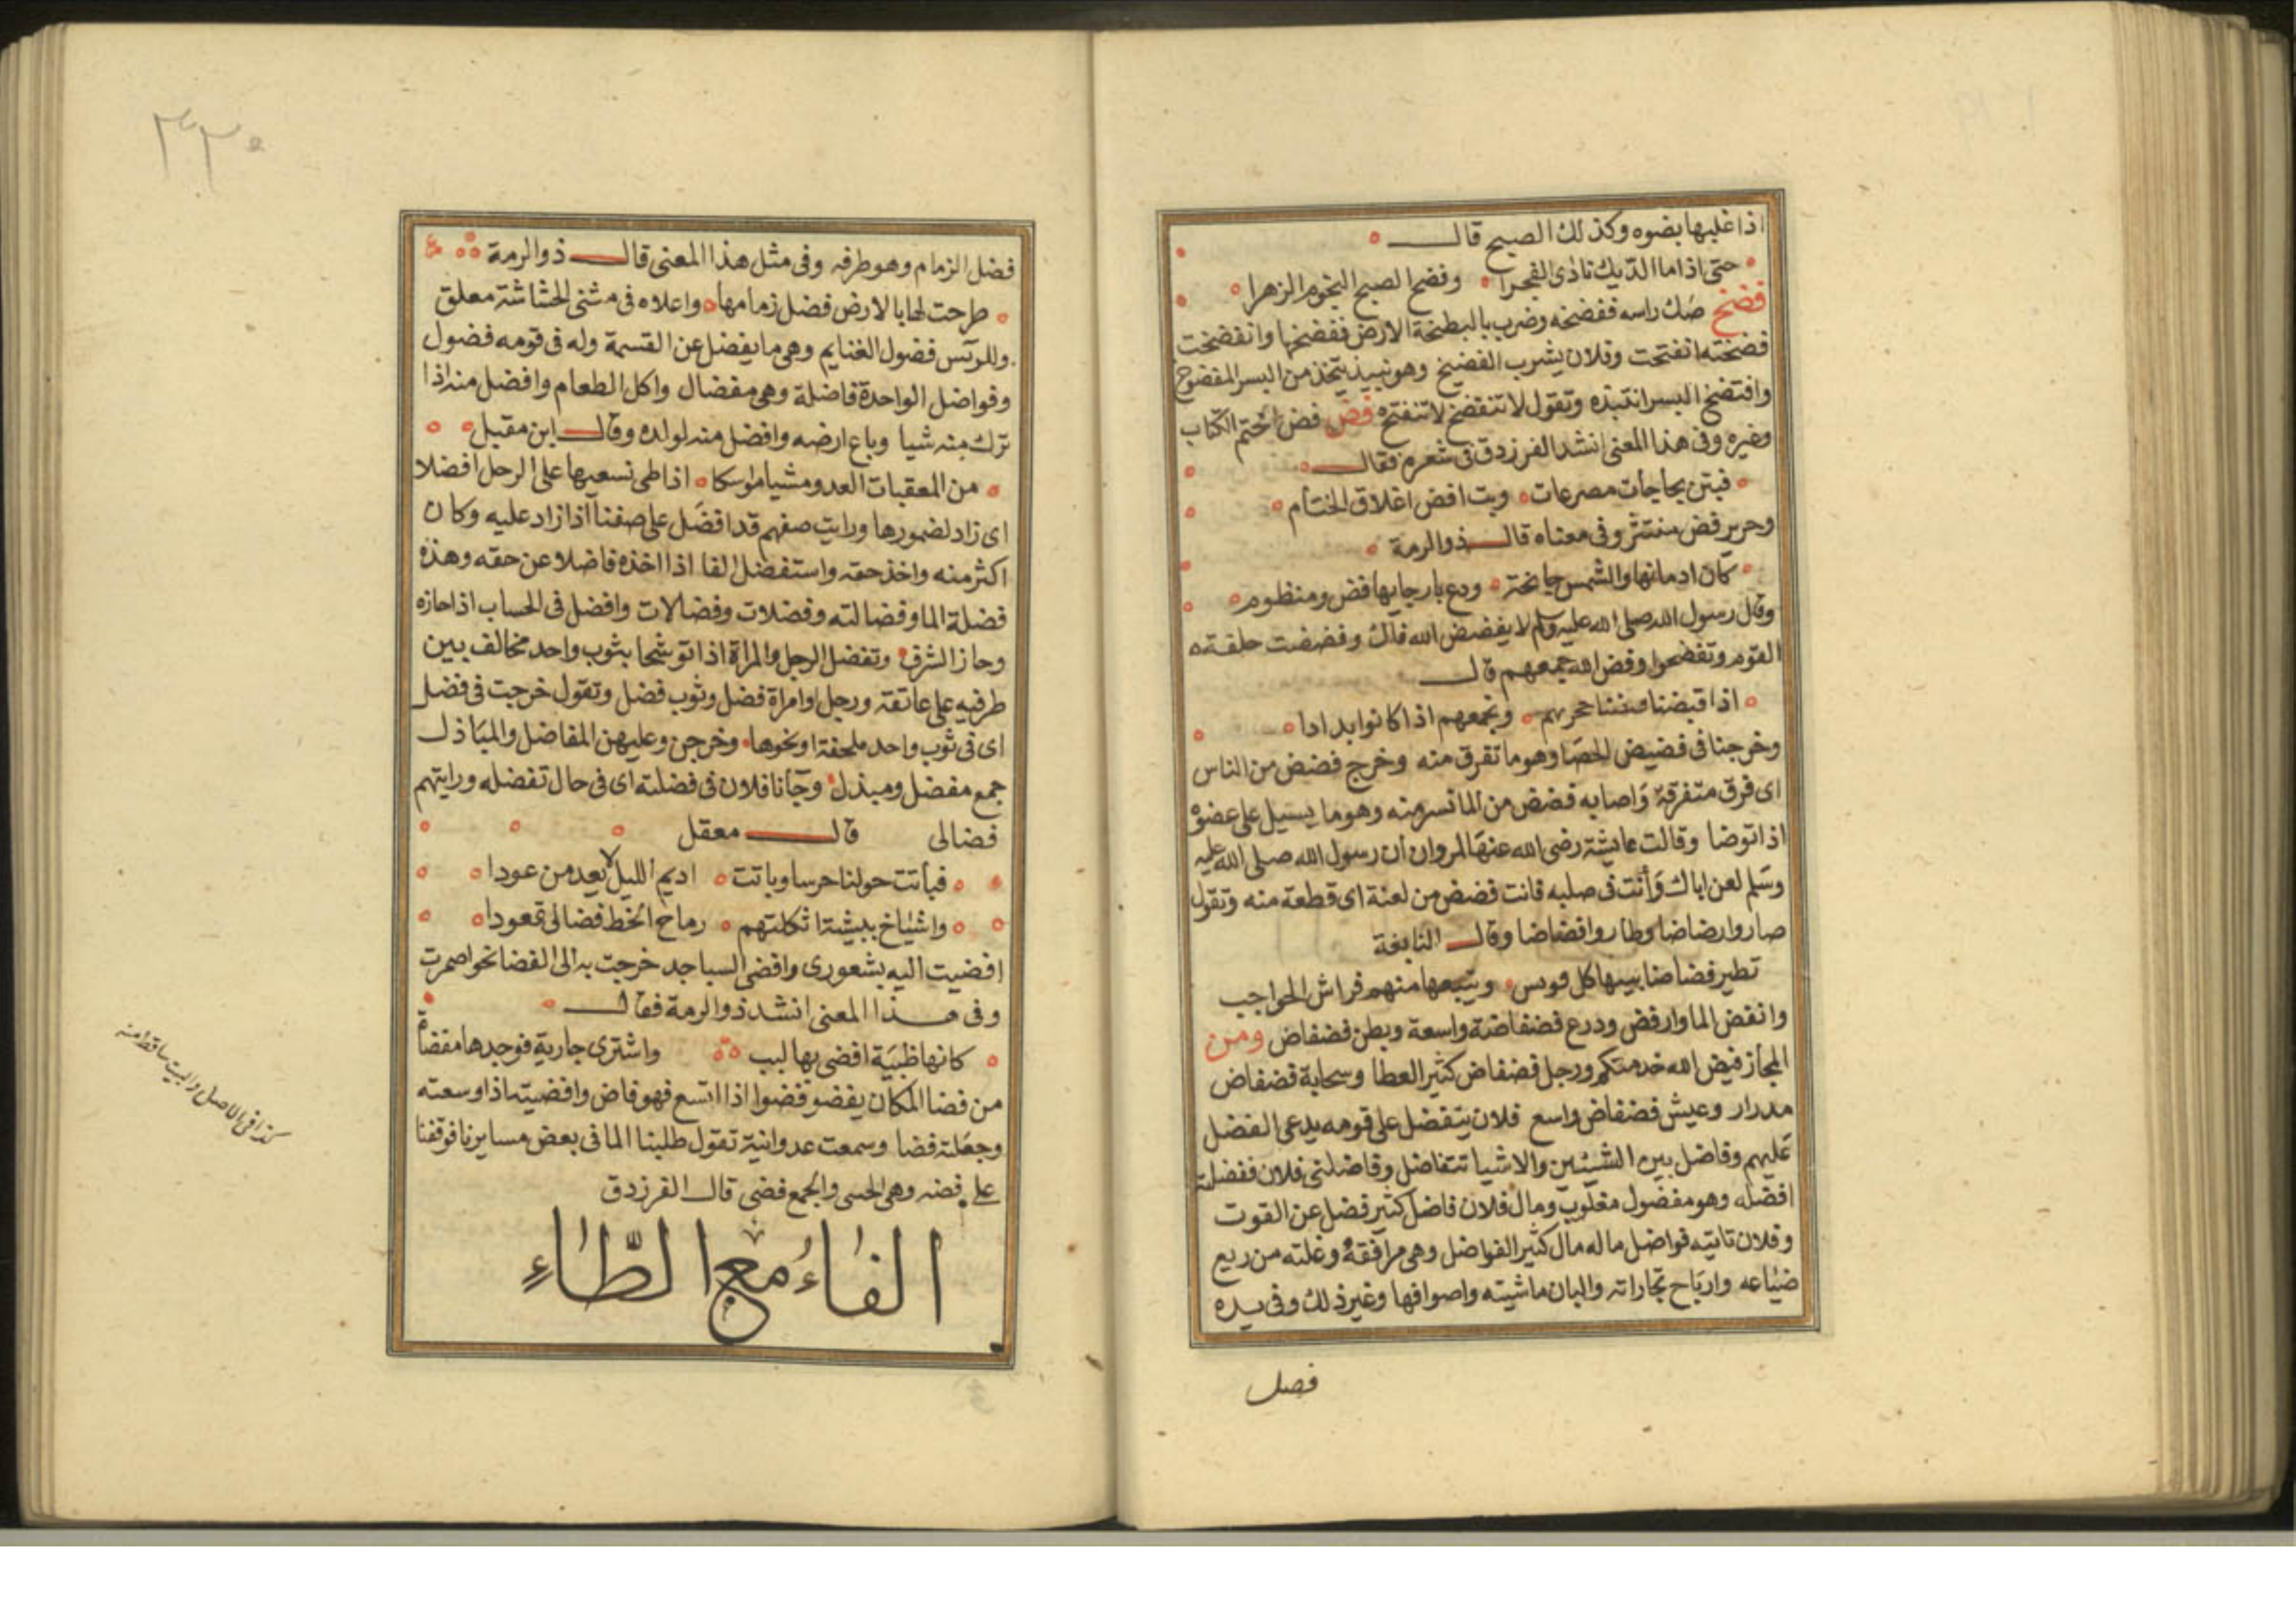 اذا غلبها بضوه وكذلك الصبح قال
حتى اذا ما الديك نادى الفجرا وفضح الصبح النجوم الزهرا
فضخ صك راسه ففضخه وضرب بالبطيخة الارض ففضخها وانفضخت
فضخته انفتحت وفلان يشرب الفضيخ وهو نبيذ يتخذ من البسر المفضوخ
وافتضخ البسر انتبذه وتقول لا تنفضخ لا تنفتح فض فض ختم الكتاب
وغيره وفى هذا المعنى انشد الفرزدق فى شعره فقال
فبتن بجاجات مصرعات وبت افض اغلاق الختام
وحرير فض منتثر وفى معناه قال ذوالرمة
كان ادمانها والشمس جانحة ودع بارجايها فض ومنظوم
وقال رسول الله صلى الله عليه وسلم لا يفضض الله فاك وفضضت حلقة
القوم وفض الله جمعهم قال
اذا قبضنا حجرهم ونجمعهم اذا كانوا بدادا
وخرجنا فى فضيض الحصا وهو ما تفرق منه وخرج فضض من الناس
اى فرق متفرقة واصابه فضض من الما نسرمنه وهو ما يسيل على عضوه
اذا توضا وقالت عايشة رضى الله عنها لمروان ان رسول الله صلى الله عليه
وسلم لعن اباك وانت فى صلبه فانت فضض من لعنة اى قطعة منه وتقول
صاروا رضاضا وطاروا فضاضا وقال النابغة
تطير فضاضا بينها كل قونس ويتبعها منهم فراش الحواجب
وانفض الما وارفض ودرع فضفاضة واسعة وبطن فضفاض ومن
المجاز فيض الله خدمتكم ورجل فضفاض كثير العطا وسحابة فضفاض
مدرار وعيش فضفاض واسع فلان يتفضل على قومه يدعى الفضل
عليهم وفاضل بين الشيئين والاشيا تتفاضل وفاضلنى فلان ففضلته
افضله وهو مفضول مغلوب ومال فلان فاضل كثير فضل عن القوت
وفلان تاتيه فواضل ماله مال كثير الفواضل وهى مرافقه وغلته من ريع
ضياعه وارباح تجاراته والبان ماشيته واصوافها وغير ذلك وفى يده
فضل
٣٣٠
فضل الزمام وهو طرفه وفى مثل هذا المعنى قال ذوالرمة
طرحت لها بالارض فضل زمامها واعلاه فى مثنى الخشاشة معلق
وللرئس فضول الغنايم وهى ما يفضل عن القسمة وله فى قومه فضول
وفواضل الواحدة فاضلة وهى مفضال واكل الطعام وافضل منه اذا
ترك منه شيا وباع ارضه وافضل منه لولده وقال ابن مقبل
من المعقبات العدو مشيا مواسكا اذا طى نسعيها على الرحل افضلا
اى زاد لضمورها ورايت صفهم قد افضل على صفنا اذا زاد عليه وكان
اكثر منه واخذ حقه واستفضل الفا اذا اخذه فاضلا عن حقه وهذه
فضلة الما وفضالته وفضلات وفضالات وافضل فى الحساب اذا حازه
وحاز الشرف وتفضل الرجل والمراة اذا توشحا بثوب واحد مخالف بين
طرفيه على عاتقه ورجل وامراة فضل وثوب فضل وتقول خرجت فى فضل
اى فى ثوب واحد ملحفة او نحوها وخرجن وعليهن المفاضل والمباذل
جمع مفضل ومبذل وجآنا فلان فى فضلته اى فى حال تفضله ورايتهم
فضالى قال معقل
فباتت حولنا حرسا وباتت اديم الليل لا يعد من عودا
واشياخ ببيشة اثكلتهم رماح الخط فضالى قعودا
افضيت اليه بشعورى وافضى الساجد خرجت به الى الفضا نحو اصحرت
وفى هذا المعنى انشد ذوالرمة فقال
كانها ظبية افضى بها لبب واشترى جارية فوجدها مفضاة
من فضا المكان يفضو فضوا اذا اتسع فهو فاض وافضيته اذا وسعته
وجعلته فضا وسمعت عدوانية تقول طلبنا الما فى بعض مسايرنا فوقفنا
على فضه وهى الحسى والجمع فضى قال الفرزدق
الفاء مع الطاء
كذا فى الاصل والبيت ساقط منه